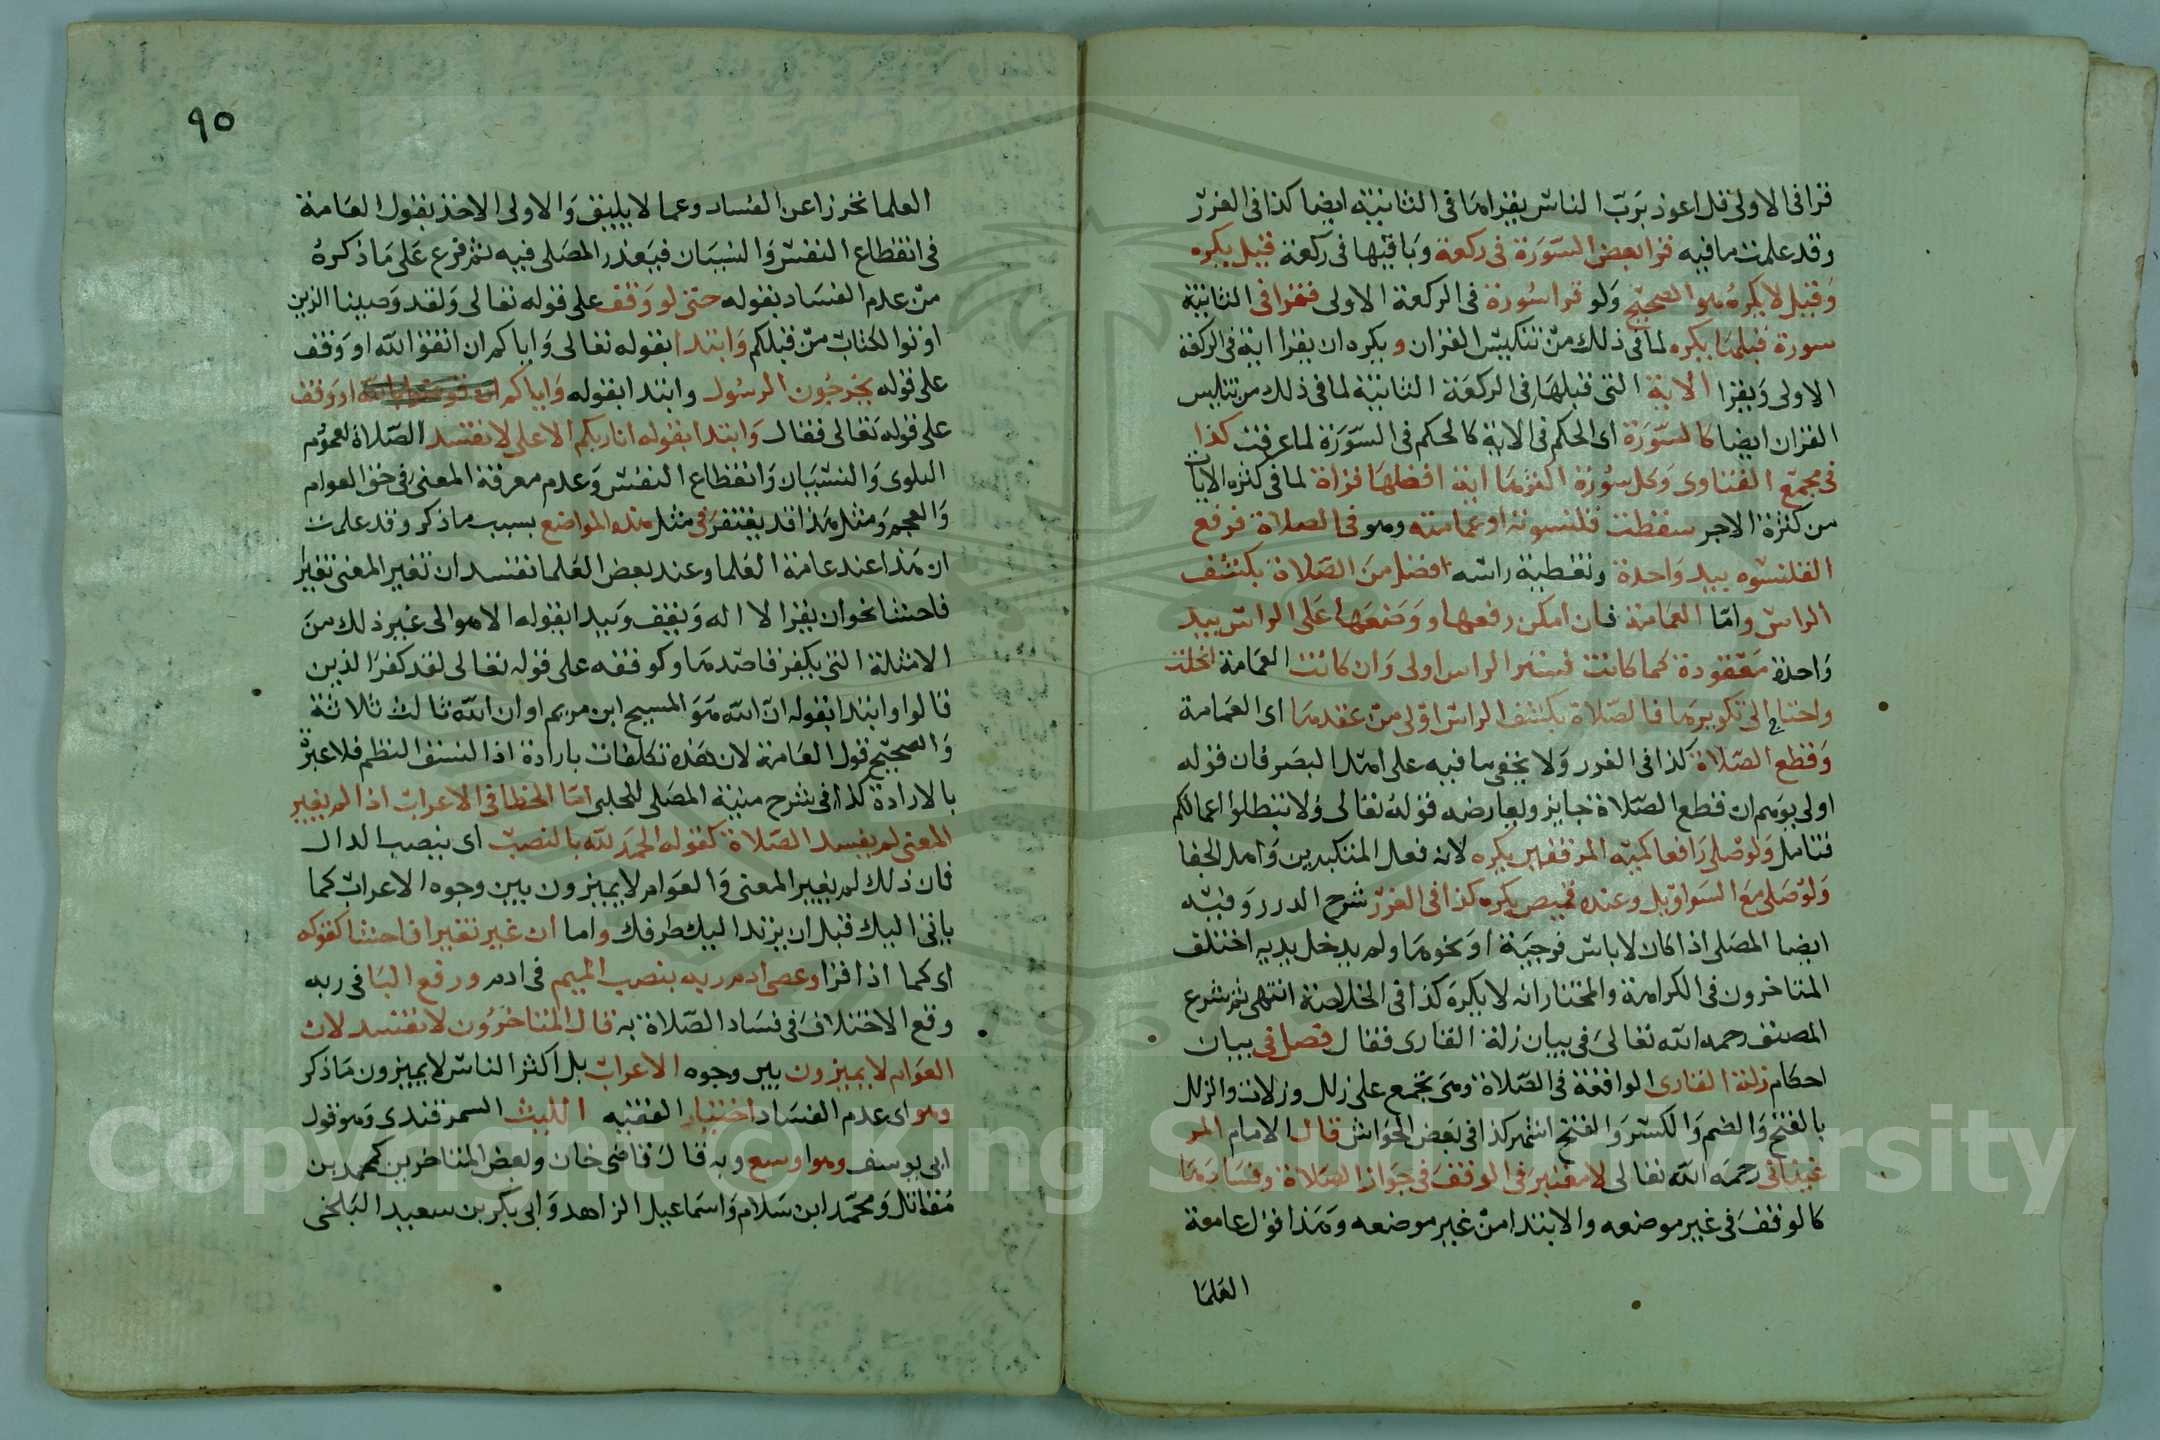 قرا فى الاولى قل اعوذ برب الناس يقراها فى الثانية ايضا كذا فى الغرر
وقد علمت ما فيه قرا بعض السورة فى ركعة وباقيها فى ركعة قيل يكره
وقيل لا يكره هو الصحيح ولو قرا سورة فى الركعة الاولى فقرا فى الثانية
سورة قبلها يكره لما فى ذلك من تنكيس القران ويكره ان يقرا اية فى الركعة
الاولى ويقرا الاية التى قبلها فى الركعة الثانية لما فى ذلك من
القران ايضا كالسورة اى الحكم فى الاية كالحكم فى السورة لما عرفت كذا
فى مجمع الفتاوى وكل سورة اكثرها اية افضلها قراة لما فى كثرة الايات
من كثرة الاجر سقطت قلنسوته او عمامته وهو فى الصلاة فرفع
القلنسوه بيد واحدة وتغطية راسه افضل من الصلاة بكشف
الراس واما العمامة فان امكن رفعها ووضعها على الراس بيد
واحدة معقودة كما كانت فستر الراس اولى وان كانت العمامة انحلت
واحتاج الى تكويرها فالصلاة بكشف الراس اولى من عقدها اى العمامة
وقطع الصلاة كذا فى الغرر ولا يخفى ما فيه على اهل البصر فان قوله
اولى يوهم ان قطع الصلاة جايز ويعارضه قوله تعالى ولا تبطلوا اعمالكم
فتامل ولو صلى رافعا كميه المرفقين يكره لانه فعل المتكبرين واهل الجفا
ولو صلى مع السراويل وعنده قميص يكره كذا فى الغرر شرح الدرر وفيه
ايضا المصلى اذا كان لابس فرجية او نحوها ولم يدخل يديه اختلف
المتاخرون فى الكراهة والمختار انه لا يكره كذا فى الخلاصة انتهى ثم شرع
المصنف رحمه الله تعالى فى بيان زلة القارى فقال فصل فى بيان
احكام زلة القارى الواقعة فى الصلاة وهى تجمع على زلل وزلات والزلل
بالفتح والضم والكسر والفتح اشهر كذا فى بعض الحواش قال الامام المر
غينانى رحمه الله تعالى لا معتبر فى الوقف فى جواز الصلاة وفسادها
كالوقف فى غير موضعه والابتدا من غير موضعه وهذا قول عامة
العلما
٩٥
العلما تحرزا عن الفساد وعما لا يليق والاولى الاخذ بقول العامة
فى انقطاع النفس والنسيان فيعذر المصلى فيه ثم فرع على ما ذكره
من عدم الفساد بقوله حتى لو وقف على قوله تعالى ولقد وصينا الذين
اوتوا الكتاب من قبلكم وابتدا بقوله تعالى واياكم ان اتقوا الله او وقف
على قوله يخرجون الرسول وابتدا بقوله واياكم او وقف
على قوله تعالى فقال وابتدا بقوله انا ربكم الاعلى لا تفسد الصلاة لعموم
البلوى والنسيان وانقطاع النفس وعدم معرفة المعنى فى حق العوام
والعجم ومثل هذا قد يغتفر فى مثل هذه المواضع بسبب ما ذكر وقد علمت
ان هذا عند عامة العلما وعند بعض العلما تفسد ان تغير المعنى تغيرا
فاحشا نحو ان يقرا لا اله ويقف ويبدا بقوله الا هو الى غير ذلك من
الامثلة التى يكفر قاصدها وكوقفه على قوله تعالى لقد كفر الذين
قالوا وابتدا بقوله ان الله هو المسيح ابن مريم او ان الله ثالث ثلاثة
والصحيح قول العامة لان هذه تكلفات بارادة اذ النظم فلا عبرة
بالارادة كذا فى شرح منية المصلى للحلبى اما الخطا فى الاعراب اذا لم يغير
المعنى لم يفسد الصلاة كقوله الحمد لله بالنصب اى بنصب الدال
فان ذلك لم يغيير المعنى والعوام لا يميزون بين وجوه الاعراب كما
ياتى اليك قبل ان يرتد اليك طرفك واما ان غير تغييرا فاحشا كقوله
اى كما اذا قرا وعصى ادم ربه بنصب الميم فى ادم ورفع البا فى ربه
وقع الاختلاف فى فساد الصلاة به قال المتاخرون لا تفسد لان
العوام لا يميزون بين وجوه الاعراب بل اكثر الناس لا يميزون ما ذكر
وهو اى عدم الفساد اختيار الفقيه الليث السمرقندى وهو قول
ابى يوسف وهو اوسع وبه قال قاضى خان وبعض المتاخرين كمحمد بن
مقاتل ومحمد ابن سلام واسماعيل الزاهد وابى بكر بن سعيد البلخى
Copyright © King Saud University